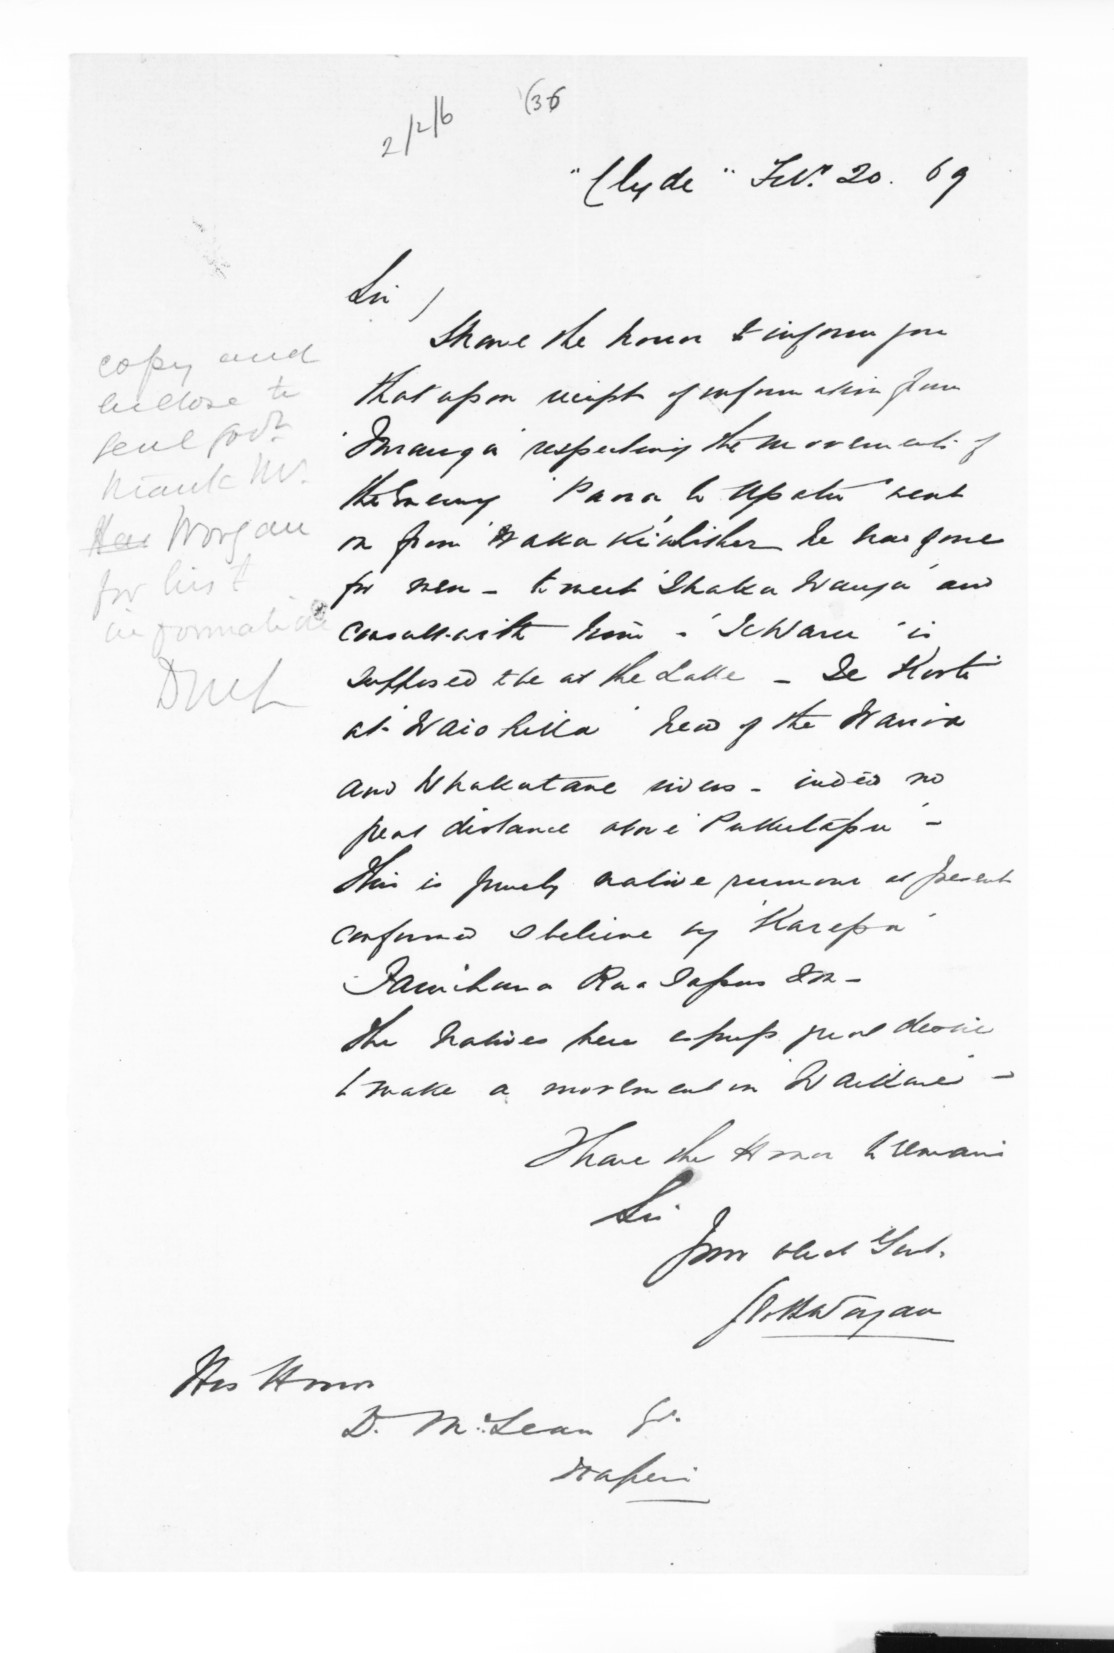 2/2/6 (36
"Clyde" Feb. 20. 69
Sir
I have the honor to inform you
that upon receipt of information from
respecting the movements of
the Enemy 'Paora te Apatu' sent
on from he has gone
for men - to meet 'Ihaka Wanga' and
consult with him - 'Te Waru' is
supposed to be at the Lake - Te Kooti
at 'head of the Wairoa
and Whakatane rivers - indeed no
great distance above 'Pukutapu' -
This is purely native rumour at present
confirmed I believe by 'Karepa'
Tamihana &c -
The Natives here express great desire
to make a movement on 'Waikare' -
I have the Honor to remain
Sir
Your obed Servt.
Worgan
His Honor
D. McLean
Napier
copy and
enclose to
Genl Govt.
thank Mr.
Worgan
for his
information
DMcL